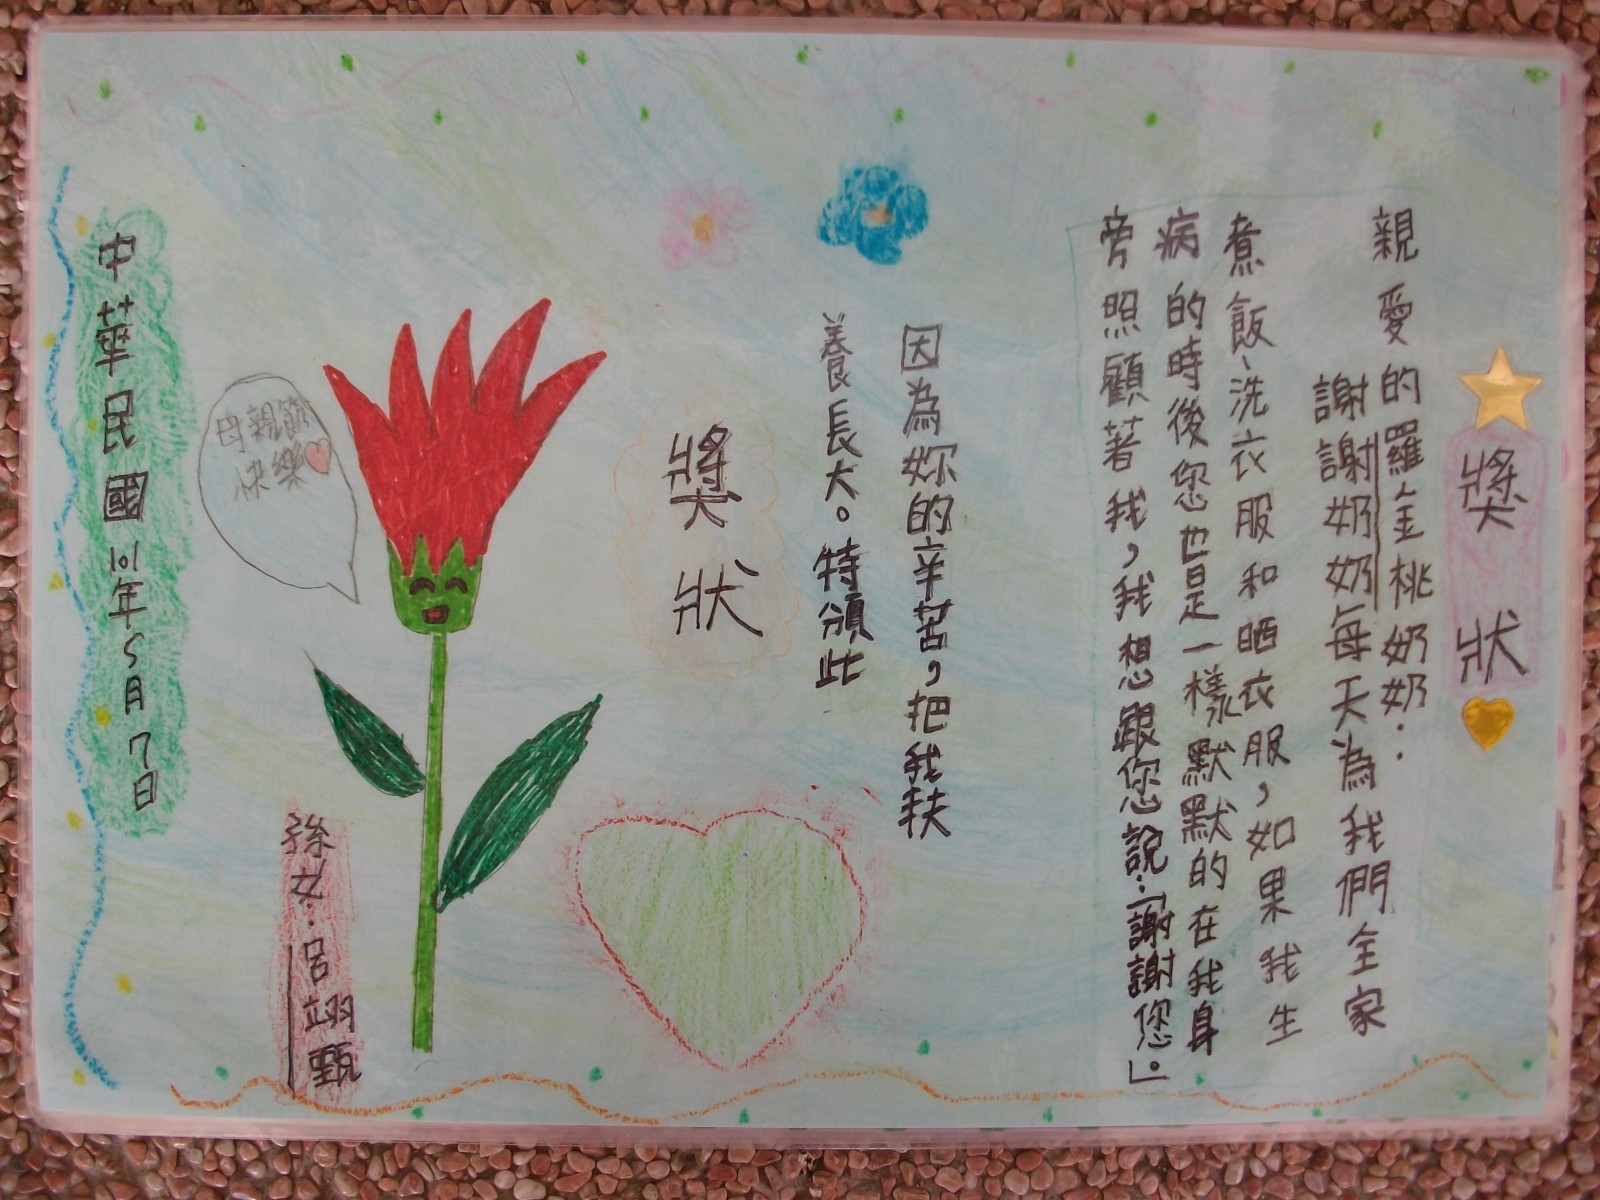 獎狀
親愛的羅金桃奶奶：
謝謝奶奶每天為我們全家
煮飯、洗衣服和晒衣服，如果我生
病的時後您也是一樣默默的在我身
旁照顧著我，我想跟您說：「謝謝您。」
因為妳的辛苦，把我扶
養長大。特頒此
獎狀
母親節
快樂
孫女：呂翊甄
中華民國101年5月7日